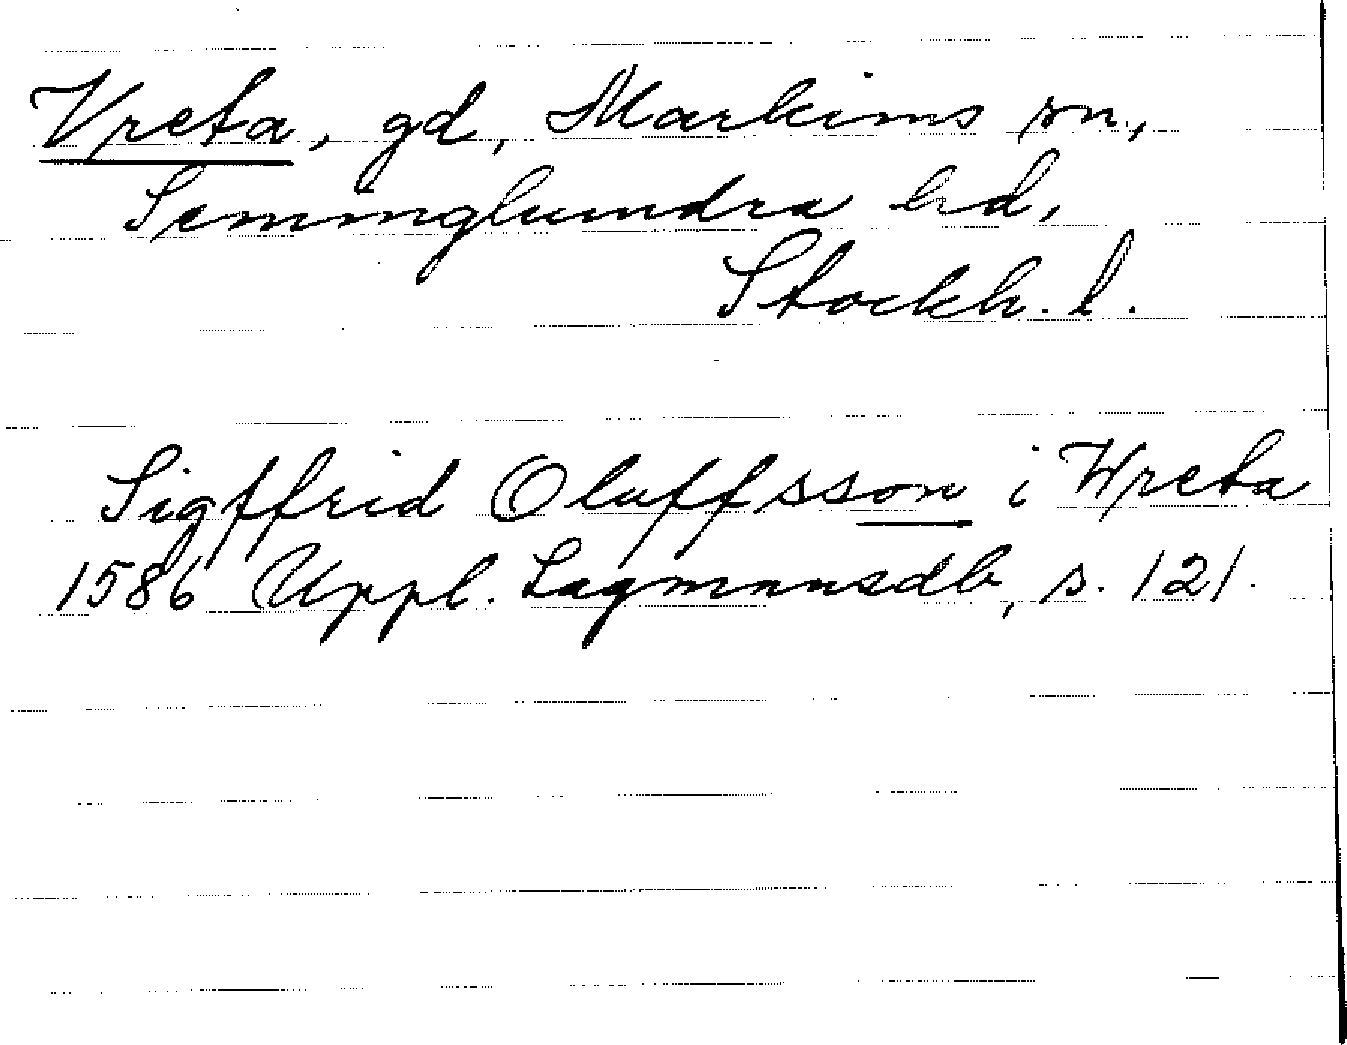 Vreta, gd, Markims sn,
Semminghundra hd,
Stockh. l.
Sigffrid Oluffsson i Wreta
1586 Uppl. Lagmansdb, s. 121.